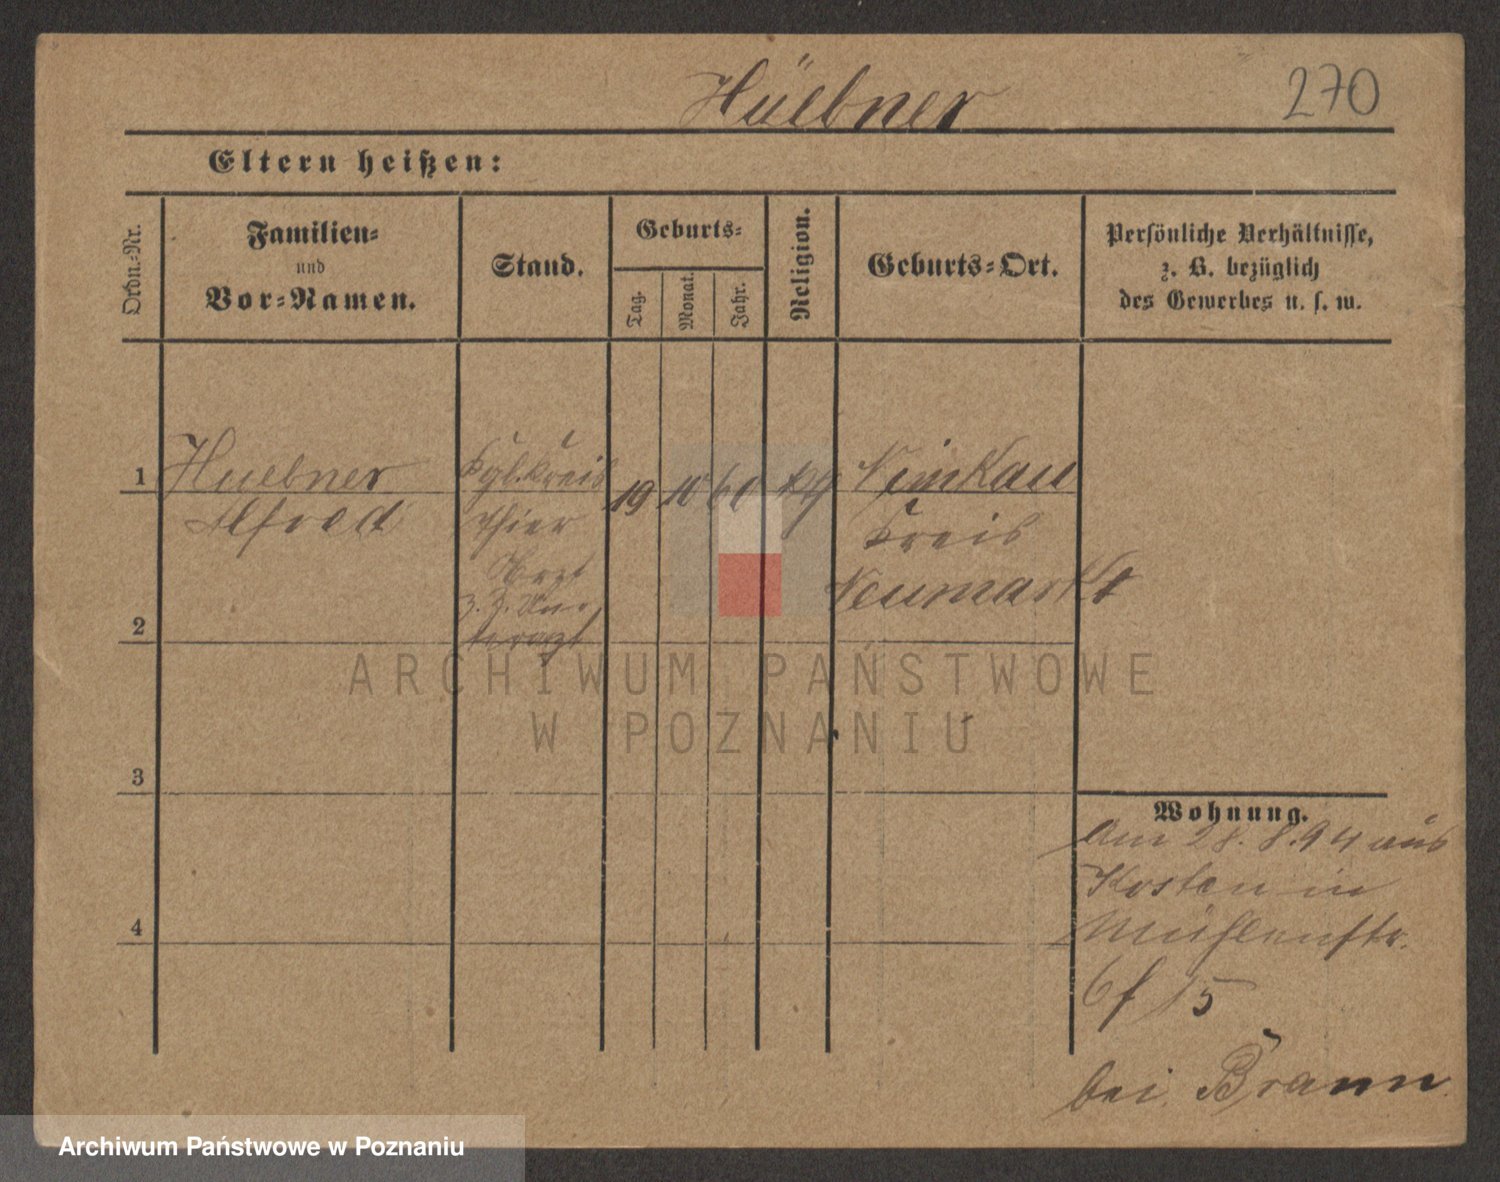 Hüebner
270
Eltern heißen:
Ordn.-Nr.
Familien-
und
Vor-Namen.
Stand.
Geburts-
Tag.
Monat.
Jahr.
Religion.
Geburts-Ort.
Persönliche Verhältnisse,
z. B. bezüglich
des Gewerbes u. s. w.
1
Huebner
Alfred
Kgl. Kreis
thier
Arzt
z. Z. Un-
terarzt
19
10
60
Nimkau
Kreis
Neumarkt
2
3
4
Wohnung.
Am 28.8.94 aus
Kosten in
Mühlenstr.
15
bei Braun
ARCHIWUM PAŃSTWOWE
W POZNANIU
Archiwum Państwowe w Poznaniu